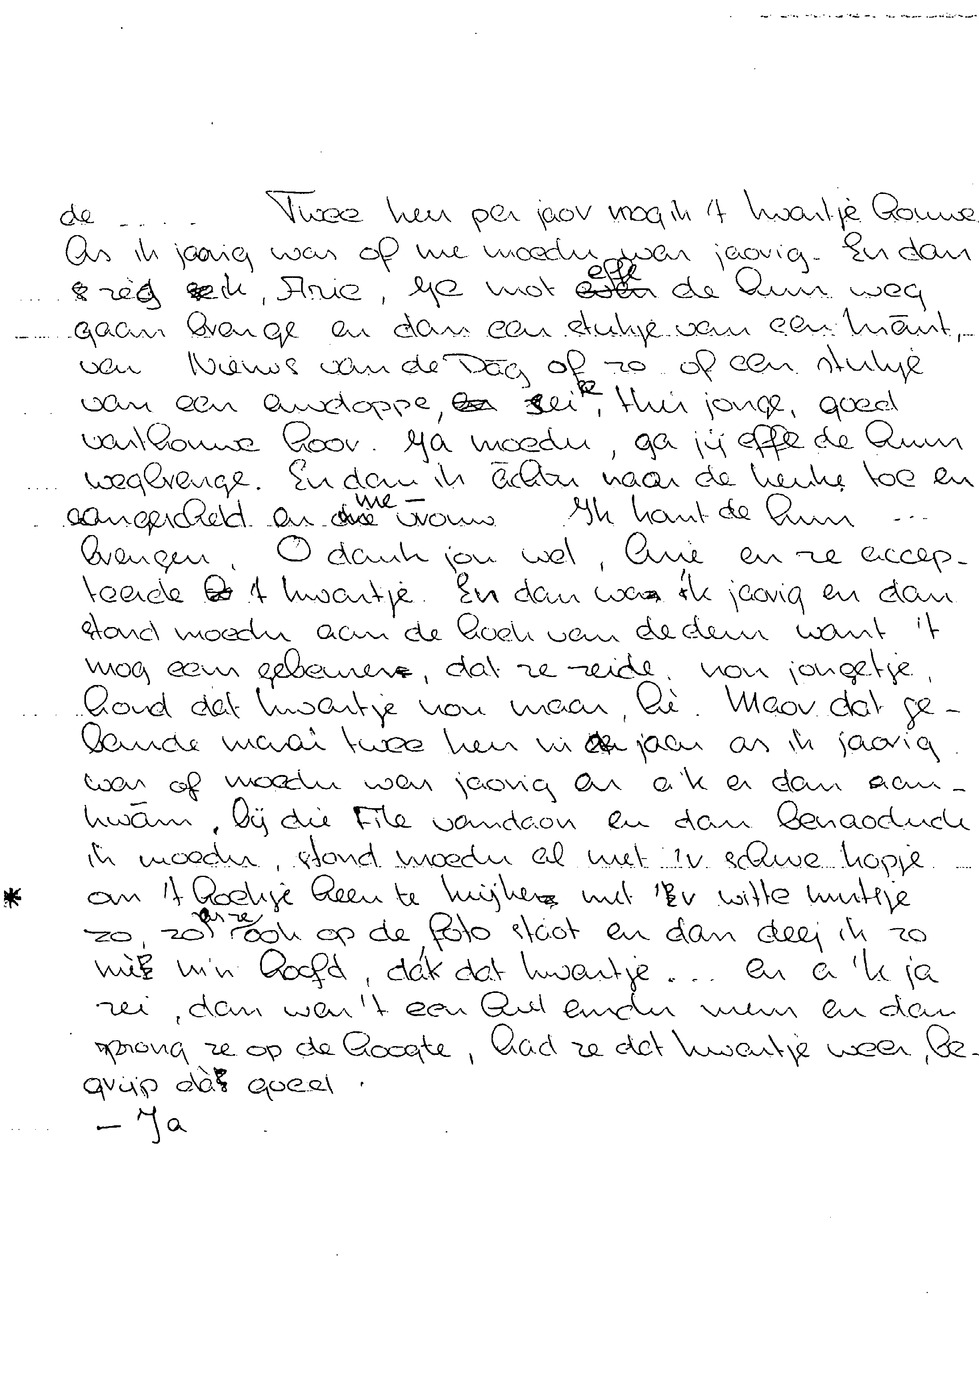 de ..... Twee keer per jaor mog ik 't kwartje houwe
As ik jaorig was of me moeder was jaorig. En dan
zèg ik, Arie, je mot effe de huur weg
gaan brenge en dan een stukje van een krānt,
van Nieuws van de Dāg of zo of een stukje
van een auwdoppe, zei ze, hier jonge, goed
vasthouwe hoor. Ja moeder, ga jij effe de huur
wegbrenge. En dan ik āchter naar de keuke toe en
aangescheld en me vrouw Ik komt de huur ...
brengen. O dank jou wel, Arie en ze accep-
teerde 't kwartje. En dan was ik jaorig en dan
stond moeder aan de hoek van de dem want 't
mog een gebeure, dat ze zeide, nou jongetje,
houd dat kwartje nou maar, hè. Maor dat ge-
beurde maar twee keer in 't jaar as ik jaorig
was of moeder was jaorig en a'k er dan aan-
kwām, bij die File vandaon en dan benaoderde
ik moeder, stond moeder al met 'r schuwe kopje
om 't hoekje heen te kijke met 'r witte mutsje
zo, zo as ze ook op de foto stāot en dan deej ik zo
mit m'n hoofd, dák dat kwartje ... en a'k ja
zei, dan was't een heel ander mens en dan
sprong ze op de hoogte, had ze dat kwartje weer, be-
grijp dàt goed.
- Ja